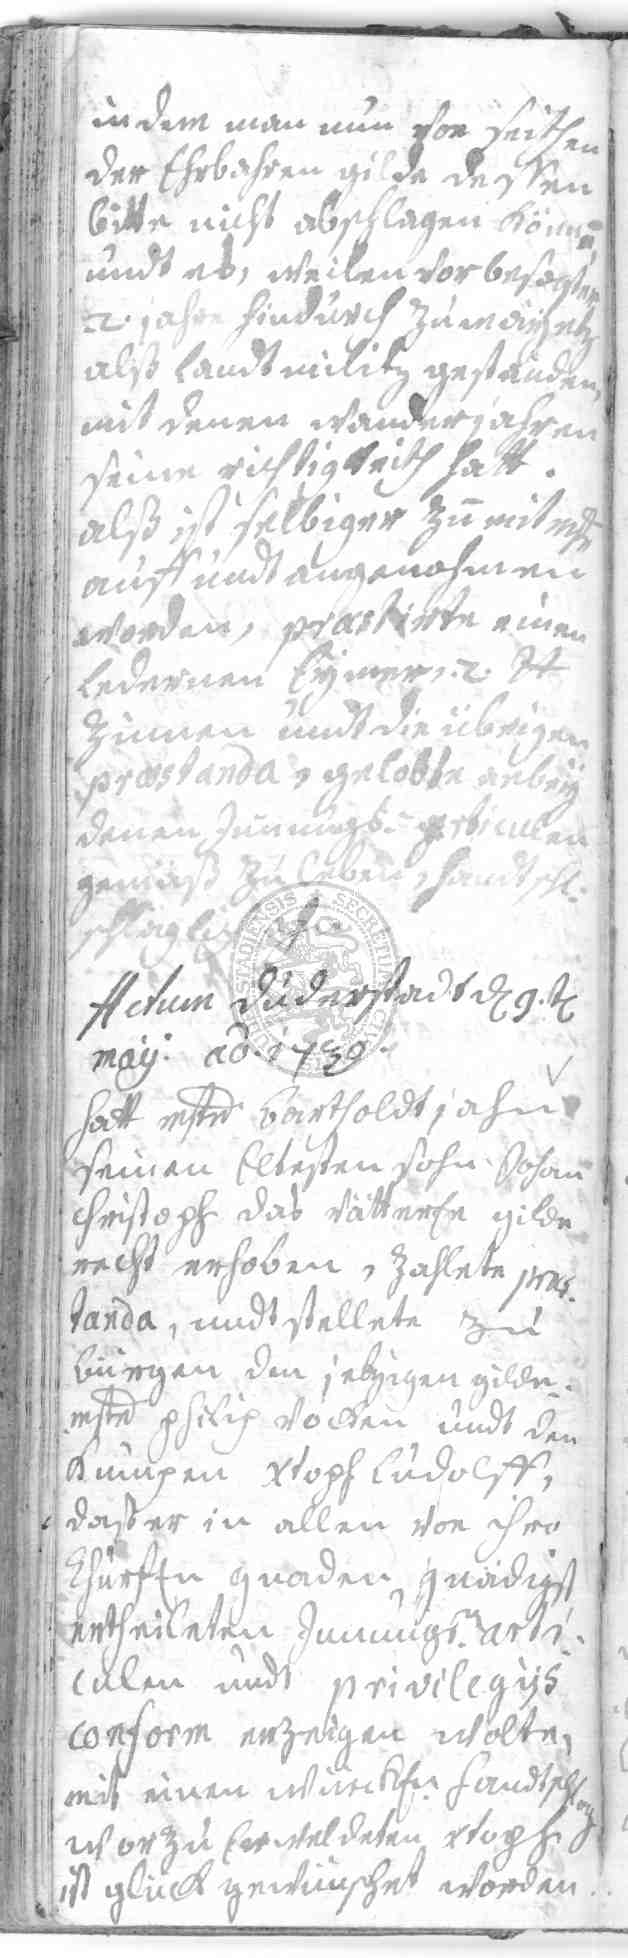 in dem man nun von seithen
der Ehrbahren gilde dessen
bitte nicht abschlagen könne
undt es, weilen vorbesagter
2. jahre hindurch zu
alß landt militz gestanden,
mit denen wanderjahren
seine richtigkeith hatt.
alß ist selbiger zum mitmstr
auff undt angenohmen
worden, praestirte einen
ledernen Eymer, 2. ℔
Zinnen undt die übrigen
praestanda, gelobte anbey
denen Innungs-articulen
gemäß zu leben, handtschl.
schläglich an.
Actum Duderstadt d 9. t
maij. ao. 1739.
hatt mstr bartholdt jahn
seinen Eltesten sohn Johan
Christoph das vätterln gilde
recht erhoben, zahlete praes-
tanda, undt stellete zu
bürgen den jetzigen gilde-
mstr philip Vocken undt den
Kumpen Xtoph Ludolff,
daß er in allen von ihro
Churfln gnaden gnädigst
ertheileten Innungs arti-
culen undt privilegijs
conform erzeigen wolte,
mit einen würckln handtschlag
worzu Erweldeten Xtoph
ist glück gewünschet worden.
SECRETUM